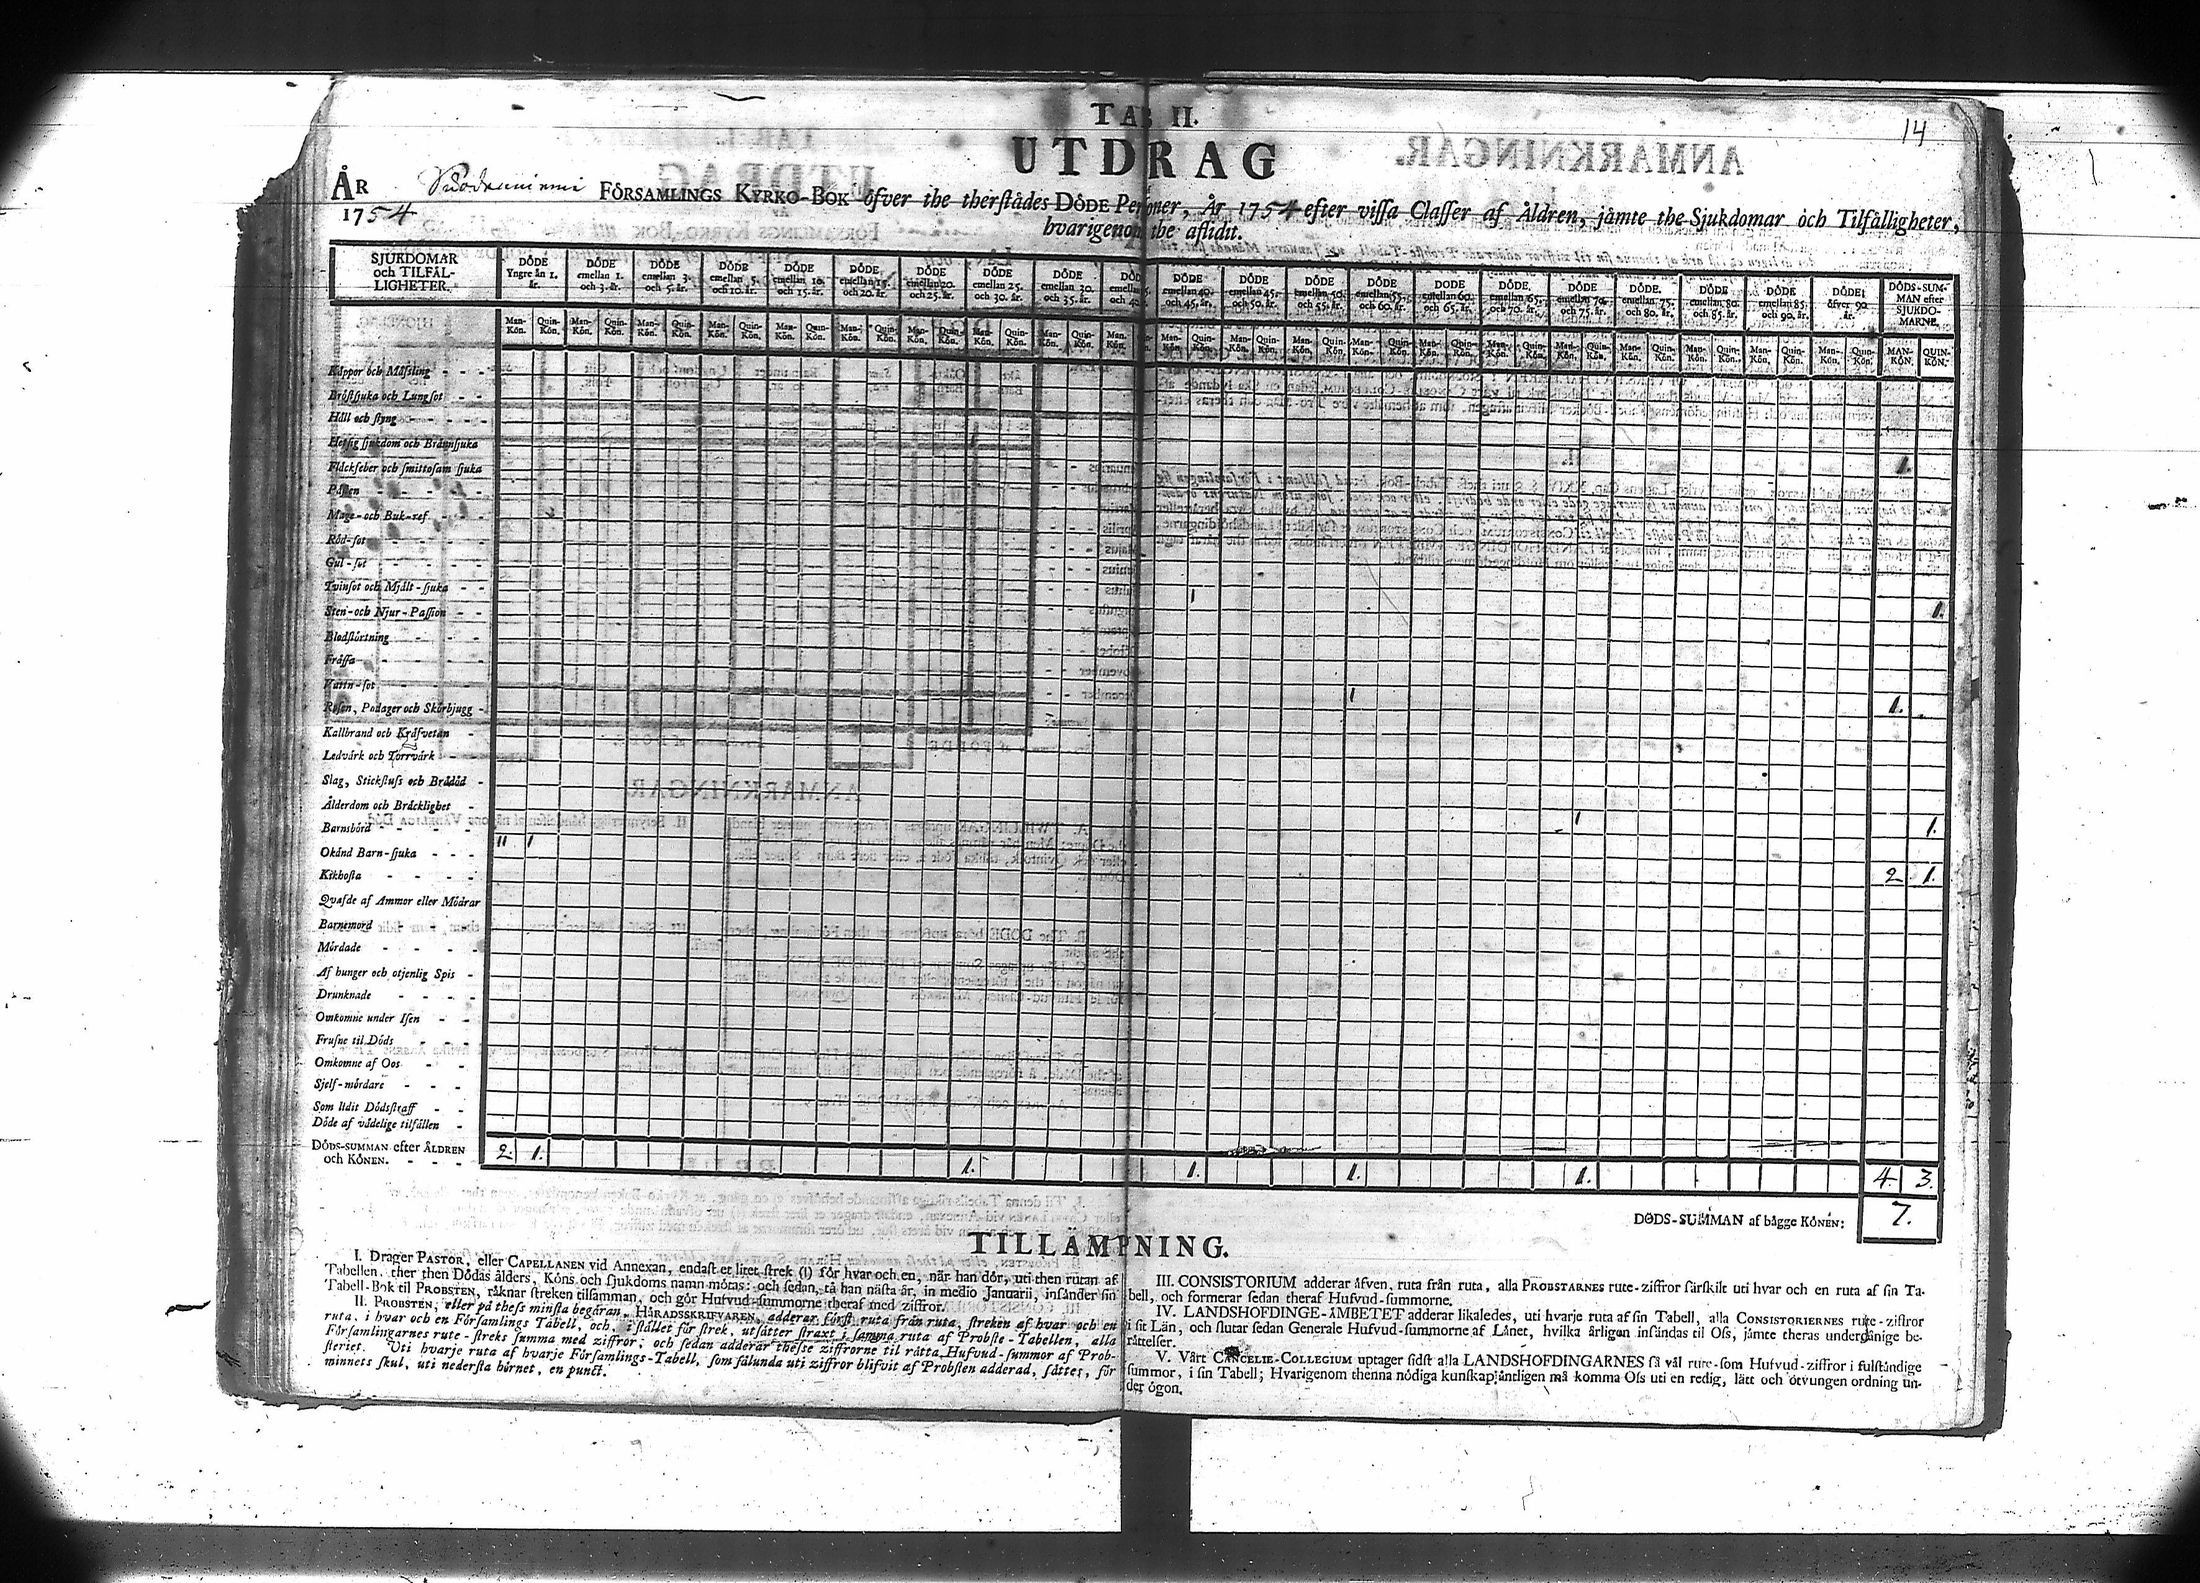 14
TAB II.
UTDRAG
ÅR 1754
FÖRSAMLINGS KYRKO-BOK öfver the therstädes DÖDE Personer, År 1754 efter vissa Classer af Åldren, jämte the Sjukdomar och Tilfälligheter,
hvarigenom the aflidit.
SJUKDOMAR och TILFÄL-LIGHETER.
DÖDE Yngre än 1. år.
DÖDE emellan 1. och 3. år.
DÖDE emellan 3. och 5. år.
DÖDE emellan 5. och 10. år.
DÖDE emellan 10. och 15. år.
DÖDE emellan 15. och 20. år.
DÖDE emellan 20. och 25. år.
DÖDE emellan 25. och 30. år.
DÖDE emellan 30. och 35. år.
DÖDE emellan 35. och 40. år.
DÖDE emellan 40. och 45. år.
DÖDE emellan 45. och 50. år.
DÖDE emellan 50. och 55. år.
DÖDE emellan 55. och 60. år.
DÖDE emellan 60. och 65. år.
DÖDE emellan 65. och 70. år.
DÖDE emellan 70. och 75. år.
DÖDE. emellan 75. och 80. år.
DÖDE emellan 80. och 85. år.
DÖDE emellan 85. och 90. år.
DÖDE öfver 90. år.
DÖDS-SUM-MAN efter SJUKDO-MARNE.
Man-Kön. Quin-Kön. Man-Kön. Quin-Kön. Man-Kön. Quin-Kön. Man-Kön. Quin-Kön. Man-Kön. Quin-Kön. Man-Kön. Quin-Kön. Man-Kön. Quin-Kön. Man-Kön. Quin-Kön. Man-Kön. Quin-Kön. Man-Kön. Man-Kön. Quin-Kön. Man-Kön. Quin-Kön. Man-Kön. Quin-Kön. Man-Kön. Quin-Kön. Man-Kön. Quin-Kön. Man-Kön. Quin-Kön. Man-Kön. Quin-Kön. Man-Kön. Quin-Kön. Man-Kön. Quin-Kön. Man-Kön. Quin-Kön. Man-Kön. Quin-Kön. MAN-KÖN QUIN-KÖN.
Koppor och Mässling - - -
Bröstsjuka och Lungsot - -
Håll och styng - - - -
Hetsig sjukdom och Brännsjuka 1
Fläckfeber och smittosam sjuka 1.
Pästen - - - - -
Mage- och Buk-ref - - -
Röd-sot - - - - -
Gul-sot - - - - -
Tvinsot och Mjält-sjuka - - 1
Sten- och Njur-Passion - - 1.
Blodstörtning - - - -
Frässa - - - - -
Vattu-sot - - - - 1
Rosen, Podager och Skörbjugg - 1.
Kallbrand och Kräfvetan -
Ledvärk och Torrvärk - -
Slag, Stickfluss och Brådöd -
Ålderdom och Bräcklighet - 1
Barnsbörd - - - - 1.
Okänd Barn-sjuka - - - 11 1
Kikhosta - - - - 2 1.
Qvafde af Ammor eller Mödrar
Barnemord - - - -
Mördade - - - -
Af hunger och otjenlig Spis -
Drunknade - - - -
Omkomne under Isen - -
Frusne til Döds - - -
Omkomne af Oos - -
Sjelf-mördare - - -
Som lidit Dödsstraff - -
Döde af vådelige tilfällen -
DÖDS-SUMMAN efter ÅLDREN och KÖNEN. - - - 2. 1. 1. 1. 1. 1. 4. 3.
DÖDS-SUMMAN af bägge KÖNEN: 7.
TILLÄMPNING.
I. Drager PASTOR, eller CAPELLANEN vid Annexan, endast et litet strek (1) för hvar och en, när han dör, uti then rutan af
Tabellen, ther then Dödas ålders, Köns och sjukdoms namn mötas: och sedan, tå han nästa år, in medio Januarii, insänder sin
Tabell-Bok til PROBSTEN, räknar streken tilsamman, och gör Hufvud-summorne theraf med ziffror.
II. PROBSTEN, eller på thess minsta begäran, HÄRADSSKRIFVAREN, adderar först ruta från ruta, streken af hvar och en
ruta, i hvar och en Församlings Tabell, och, i stället för strek, utsätter straxt i samma ruta af Probste-Tabellen, alla
Församlingarnes rute-streks summa med ziffror, och sedan adderar thesse ziffrorne til rätta Hufvud-summor af Prob-
steriet. Uti hvarje ruta af hvarje Församlings-Tabell, som sålunda uti ziffror blifvit af Probsten adderad, sättes, för
minnets skul, uti nedersta hörnet, en punct.
III. CONSISTORIUM adderar äfven, ruta från ruta, alla PROBSTARNES rute-ziffror särskilt uti hvar och en ruta af sin Ta-
bell, och formerar sedan theraf Hufvud-summorne.
IV. LANDSHOFDINGE-ÄMBETET adderar likaledes, uti hvarje ruta af sin Tabell, alla CONSISTORIERNES rute-ziffror
i sit Län, och slutar sedan Generale Hufvud-summorne af Länet, hvilka årligen insändas til Oss, jämte theras underdånige be-
rättelser.
V. Vårt CANCELIE-COLLEGIUM uptager sidst alla LANDSHOFDINGARNES så väl rute-som Hufvud-ziffror i fulständige
summor, i sin Tabell; Hvarigenom thenna nödiga kunskap äntligen må komma Oss uti en redig, lätt och otvungen ordning un-
der ögon.